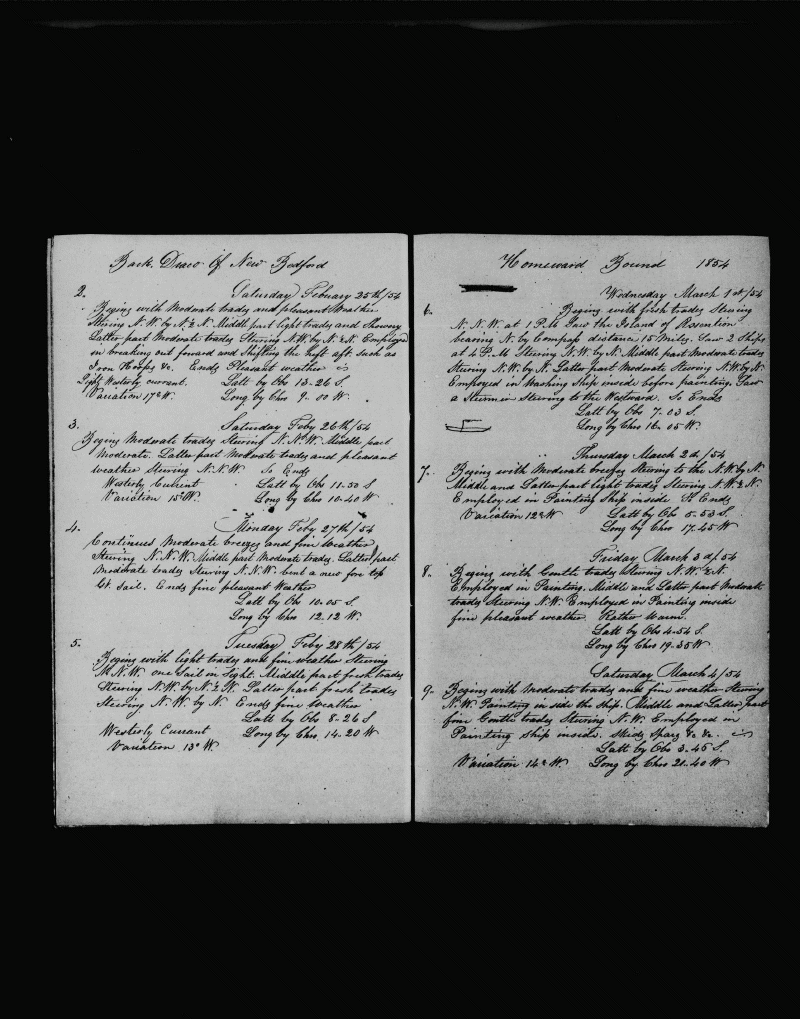 Bark Draco of New Bedford
2. Saturday Febuary 25th/54
Begins with Moderate trades and pleasant Weather
Stering N.W. by N. & N. Middle part light trades and Showery
Latter part Moderate trades Stering N.W. by N. & N. Employed
in breaking out forward and Shifting the heft aft. such as
Iron Hoops &c. Ends Pleasant weather
Light Westerly current. Latt by Obs 13-26 S.
Variation 17°W. Long by Chro 9-00 W.
3. Saturday Feby 26th/54
Begins Moderate trades Stering N.N.W. Middle part
Moderate. Latter part Moderate trades and pleasant
weather Stering N.N.W. So Ends
Westerly Current Latt by Obs 11-50 S
Variation 15°W. Long by Chro 10-40 W
4. Monday Feby 27th/54
Continues Moderate breezes and fine Weather
Stering N.N.W. Middle part Moderate trades. Latter part
Moderate trades Stering N.N.W. bent a new fore top
Gt. Sail. Ends fine pleasant Weather
Latt by Obs 10-05 S.
Long by Chro 12.12 W.
5. Tuesday Feby 28th/54
Begins with light trades and fine weather Stering
N.N.W. one Sail in Sight. Middle part fresh trades
Stering N.W. by N. & W. Latter part fresh trades
Stering N.W. by N. Ends fine Weather
Latt by Obs 8-26 S
Westerly Currant Long by Chro. 14-20 W
Variation 13° W.
Homeward Bound 1854
Wednesday March 1st/54
6. Begins with fresh trades Stering
N.N.W. at 1 P.M. Saw the Island of Asention
bearing N. by Compass distance 15 Miles. Saw 2 Ships
at 4 P.M. Stering N.W. by N. Middle part Moderate trades
Stering N.W. by N. Latter part Moderate Stering N.W. by N.
Employed in Washing Ship inside before painting. Saw
a Steamer Stering to the Westward. So Ends
Latt by Obs 7-03 S.
Long by Chro 16-05 W.
Thursday March 2d/54
7. Begins with Moderate breezes Stering to the N.W. by N.
Middle and Latter part light trades Stering N.W. & N.
Employed in Painting Ship inside So Ends
Variation 12°W Latt by Obs 5-53 S.
Long by Chro 17.45 W
Friday March 3d/54
8. Begins with Gentle trades Stering N.W. & N.
Employed in Painting. Middle and Latter part Moderate
trades Stering N.W. Employed in Painting inside
fine pleasant weather. Rather Warm.
Latt by Obs 4-54 S.
Long by Chro 19-35 W
Saturday March 4/54
9. Begins with Moderate trades and fine weather Stering
N.W. Painting in side the Ship. Middle and Latter part
fine Gentle trades Stering N.W. Employed in
Painting Ship inside. Skids Spars &c &c.
Latt by Obs 3-45 S.
Variation 14° W. Long by Chro 21-40 W